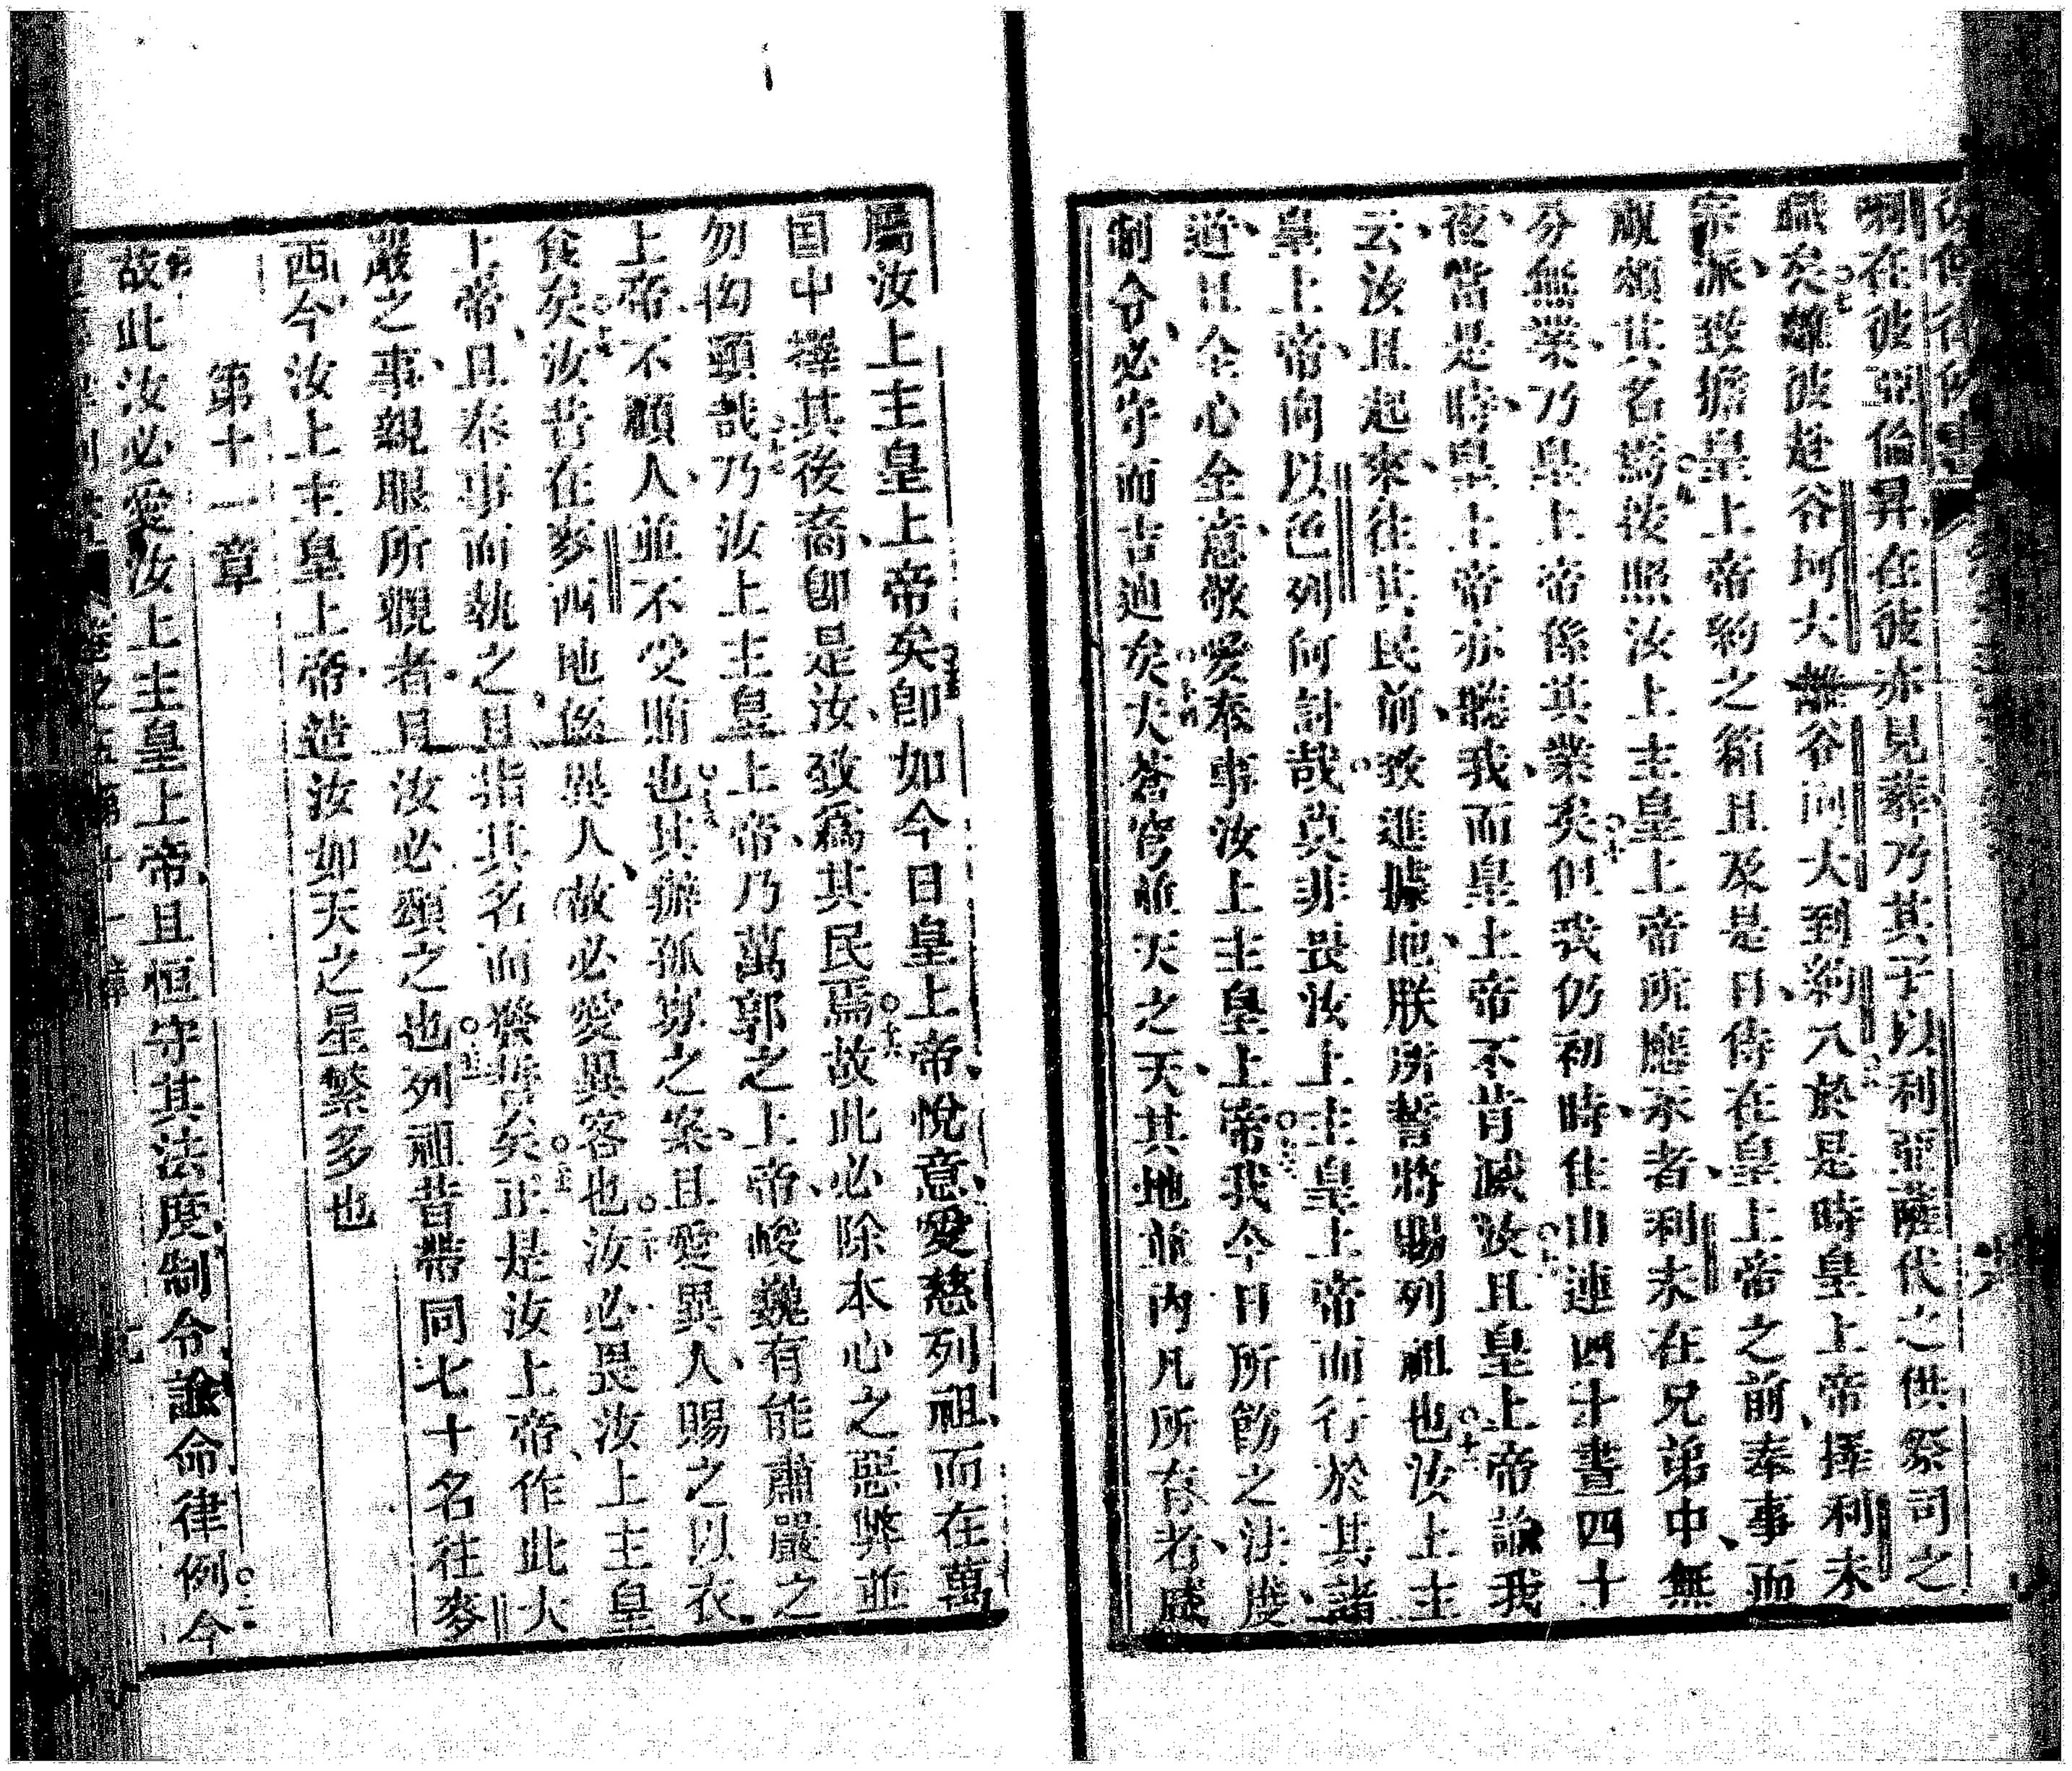 剌在彼亞倫昇在彼亦見葬乃其子以利亞薩代之供祭司之
職矣○七離彼赴谷坷大離谷坷大到約入於是時皇上帝擇利未
宗派致擔皇上帝約之箱且及是日侍在皇上帝之前奉事而
祝頌其名焉○九按照汝上主皇上帝所應承者利未在兄弟中無
分無業乃皇上帝係其業矣○十但我仍初時住山連四十晝四十
夜當是時皇上帝亦聽我而皇上帝不肯滅汝且皇上帝諭我
云汝且起來往其民前致進據地朕所誓將賜列祖也○十二汝上主
皇上帝向以色列何計哉莫非畏汝上主皇上帝而行於其諸
道且全心全意敬愛奉事汝上主皇上帝我今日所飭之法度
制令必守而吉迪矣○十四夫蒼穹並天之天其地並內凡所存者
屬汝上主皇上帝矣即如今日皇上帝悅意愛慈列祖而在萬
国中擇其後裔卽是汝致爲其民焉○十六故此必除本心之惡弊並
勿拗頸哉○十七乃汝上主皇上帝乃萬郭之上帝峻巍有能肅嚴之
上帝不顧人並不受賄也○十八其辦孤寡之案且愛異人賜之以衣
食矣○十九汝昔在麥西地係異人故必愛異客也○二十汝必畏汝上主皇
上帝且奉事而執之且指其名而發誓矣正是汝上帝作此大
嚴之事親眼所觀者且汝必頌之也列祖昔帶同七十名往麥
西今汝上主皇上帝造汝如天之星繁多也
第十一章
故此汝必愛汝上主皇上帝且恒守其法度制令諭命律例○二今